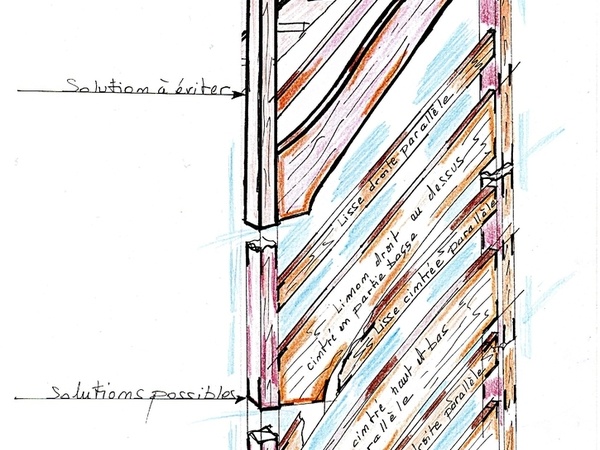 Solution à éviter
Lisse droite parallèle
Limon droit au dessus
cintré en partie basse
Lisse cintrée parallèle
Solutions possibles
cintré haut et bas
droite parallèle